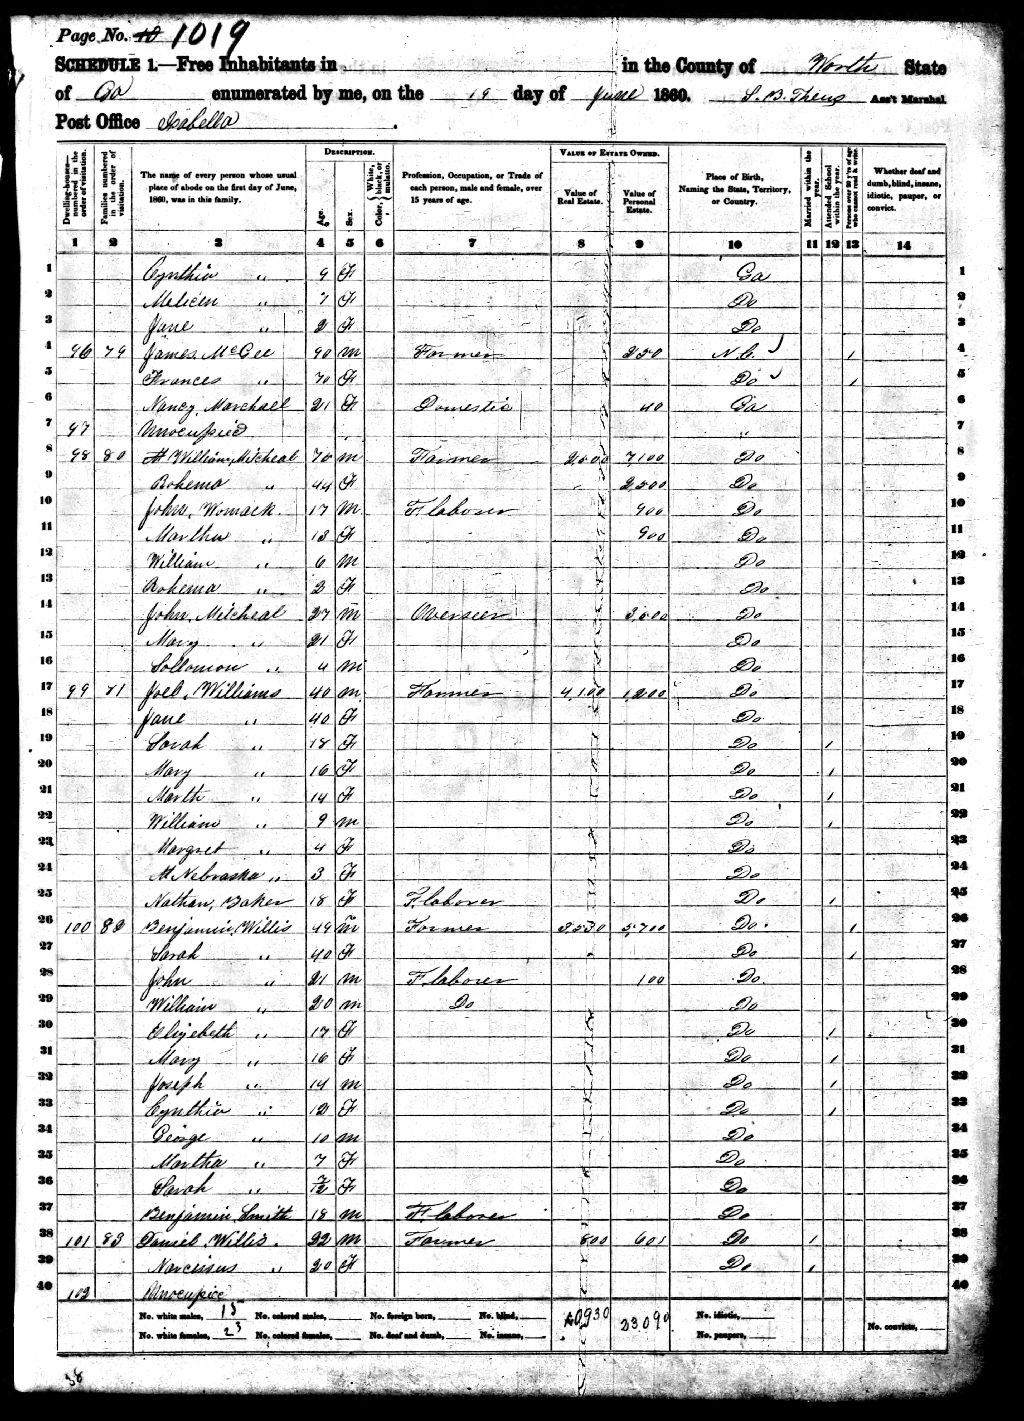 Page No. 10 1019
SCHEDULE 1.—Free Inhabitants in in the County of Worth State
of Ga enumerated by me, on the 19 day of June 1860. S. B. Theus Ass't Marshal
Post Office Isabella.
Dwelling-houses—numbered in the order of visitation. Families numbered in the order of visitation. The name of every person whose usual place of abode on the first day of June, 1860, was in this family. DESCRIPTION. Age. Sex. Color, White, black, or mulatto. Profession, Occupation, or Trade of each person, male and female, over 15 years of age. VALUE OF ESTATE OWNED. Value of Real Estate. Value of Personal Estate. Place of Birth, Naming the State, Territory, or Country. Married within the year. Attended School within the year. Persons over 20 y'rs of age who cannot read & write. Whether deaf and dumb, blind, insane, idiotic, pauper, or convict.
1 2 3 4 5 6 7 8 9 10 11 12 13 14
1 Cynthia " 9 F Ga 1
2 " 7 F Do 2
3 Jane " 2 F Do 3
4 96 79 James McGee 90 m Farmer 250 N.C. / 4
5 Frances " 70 F Do / 5
6 Nancy, Marchael 21 F Domestic 40 Ga 6
7 97 Unocupied " 7
8 98 80 William, Mitcheal 70 m Farmer 2500 7100 Do 8
9 Bohema " 44 F 2500 Do 9
10 John, Womack 17 m F. laborer 900 Do 10
11 Martha " 13 F 900 Do 11
12 William " 6 m Do 12
13 Bohema " 2 F Do 13
14 John, Mitcheal 27 m Overseer 3,500 Do 14
15 Mary " 21 F Do 15
16 Sollomon " 4 m Do 16
17 99 81 Joel, Williams 40 m Farmer 4,100 1,200 Do 17
18 Jane " 40 F Do 18
19 Sarah " 18 F Do / 19
20 Mary " 16 F Do / 20
21 Marth " 14 F Do / 21
22 William " 9 m Do / 22
23 Margret " 4 F Do 23
24 M Nebraska " 3 F Do 24
25 Nathan, Baker 18 F F. laborer Do / 25
26 100 82 Benjamin, Willis 49 m Farmer 3530 5,700 Do / 26
27 Sarah " 40 F Do / 27
28 John " 21 m F. laborer 100 Do 28
29 William " 20 m Do Do 29
30 Elizebeth " 17 F Do / 30
31 Mary " 16 F Do / 31
32 Joseph " 14 m Do / 32
33 Cynthia " 12 F Do / 33
34 George " 10 m Do 34
35 Martha " 7 F Do 35
36 Sarah " F Do 36
37 Benjamin, Smith 18 m F. laborer Do 37
38 101 83 Daniel, Willis. 22 m Farmer 800 601 Do / 38
39 Narcissus " 20 F Do / 39
40 102 Unocupied 40
No. white males, 15 No. colored males, No. foreign born, No. blind, 10930 23090 No. idiotic,
No. white females, 23 No. colored females, No. deaf and dumb, No. insane, No. paupers, No. convicts,
38